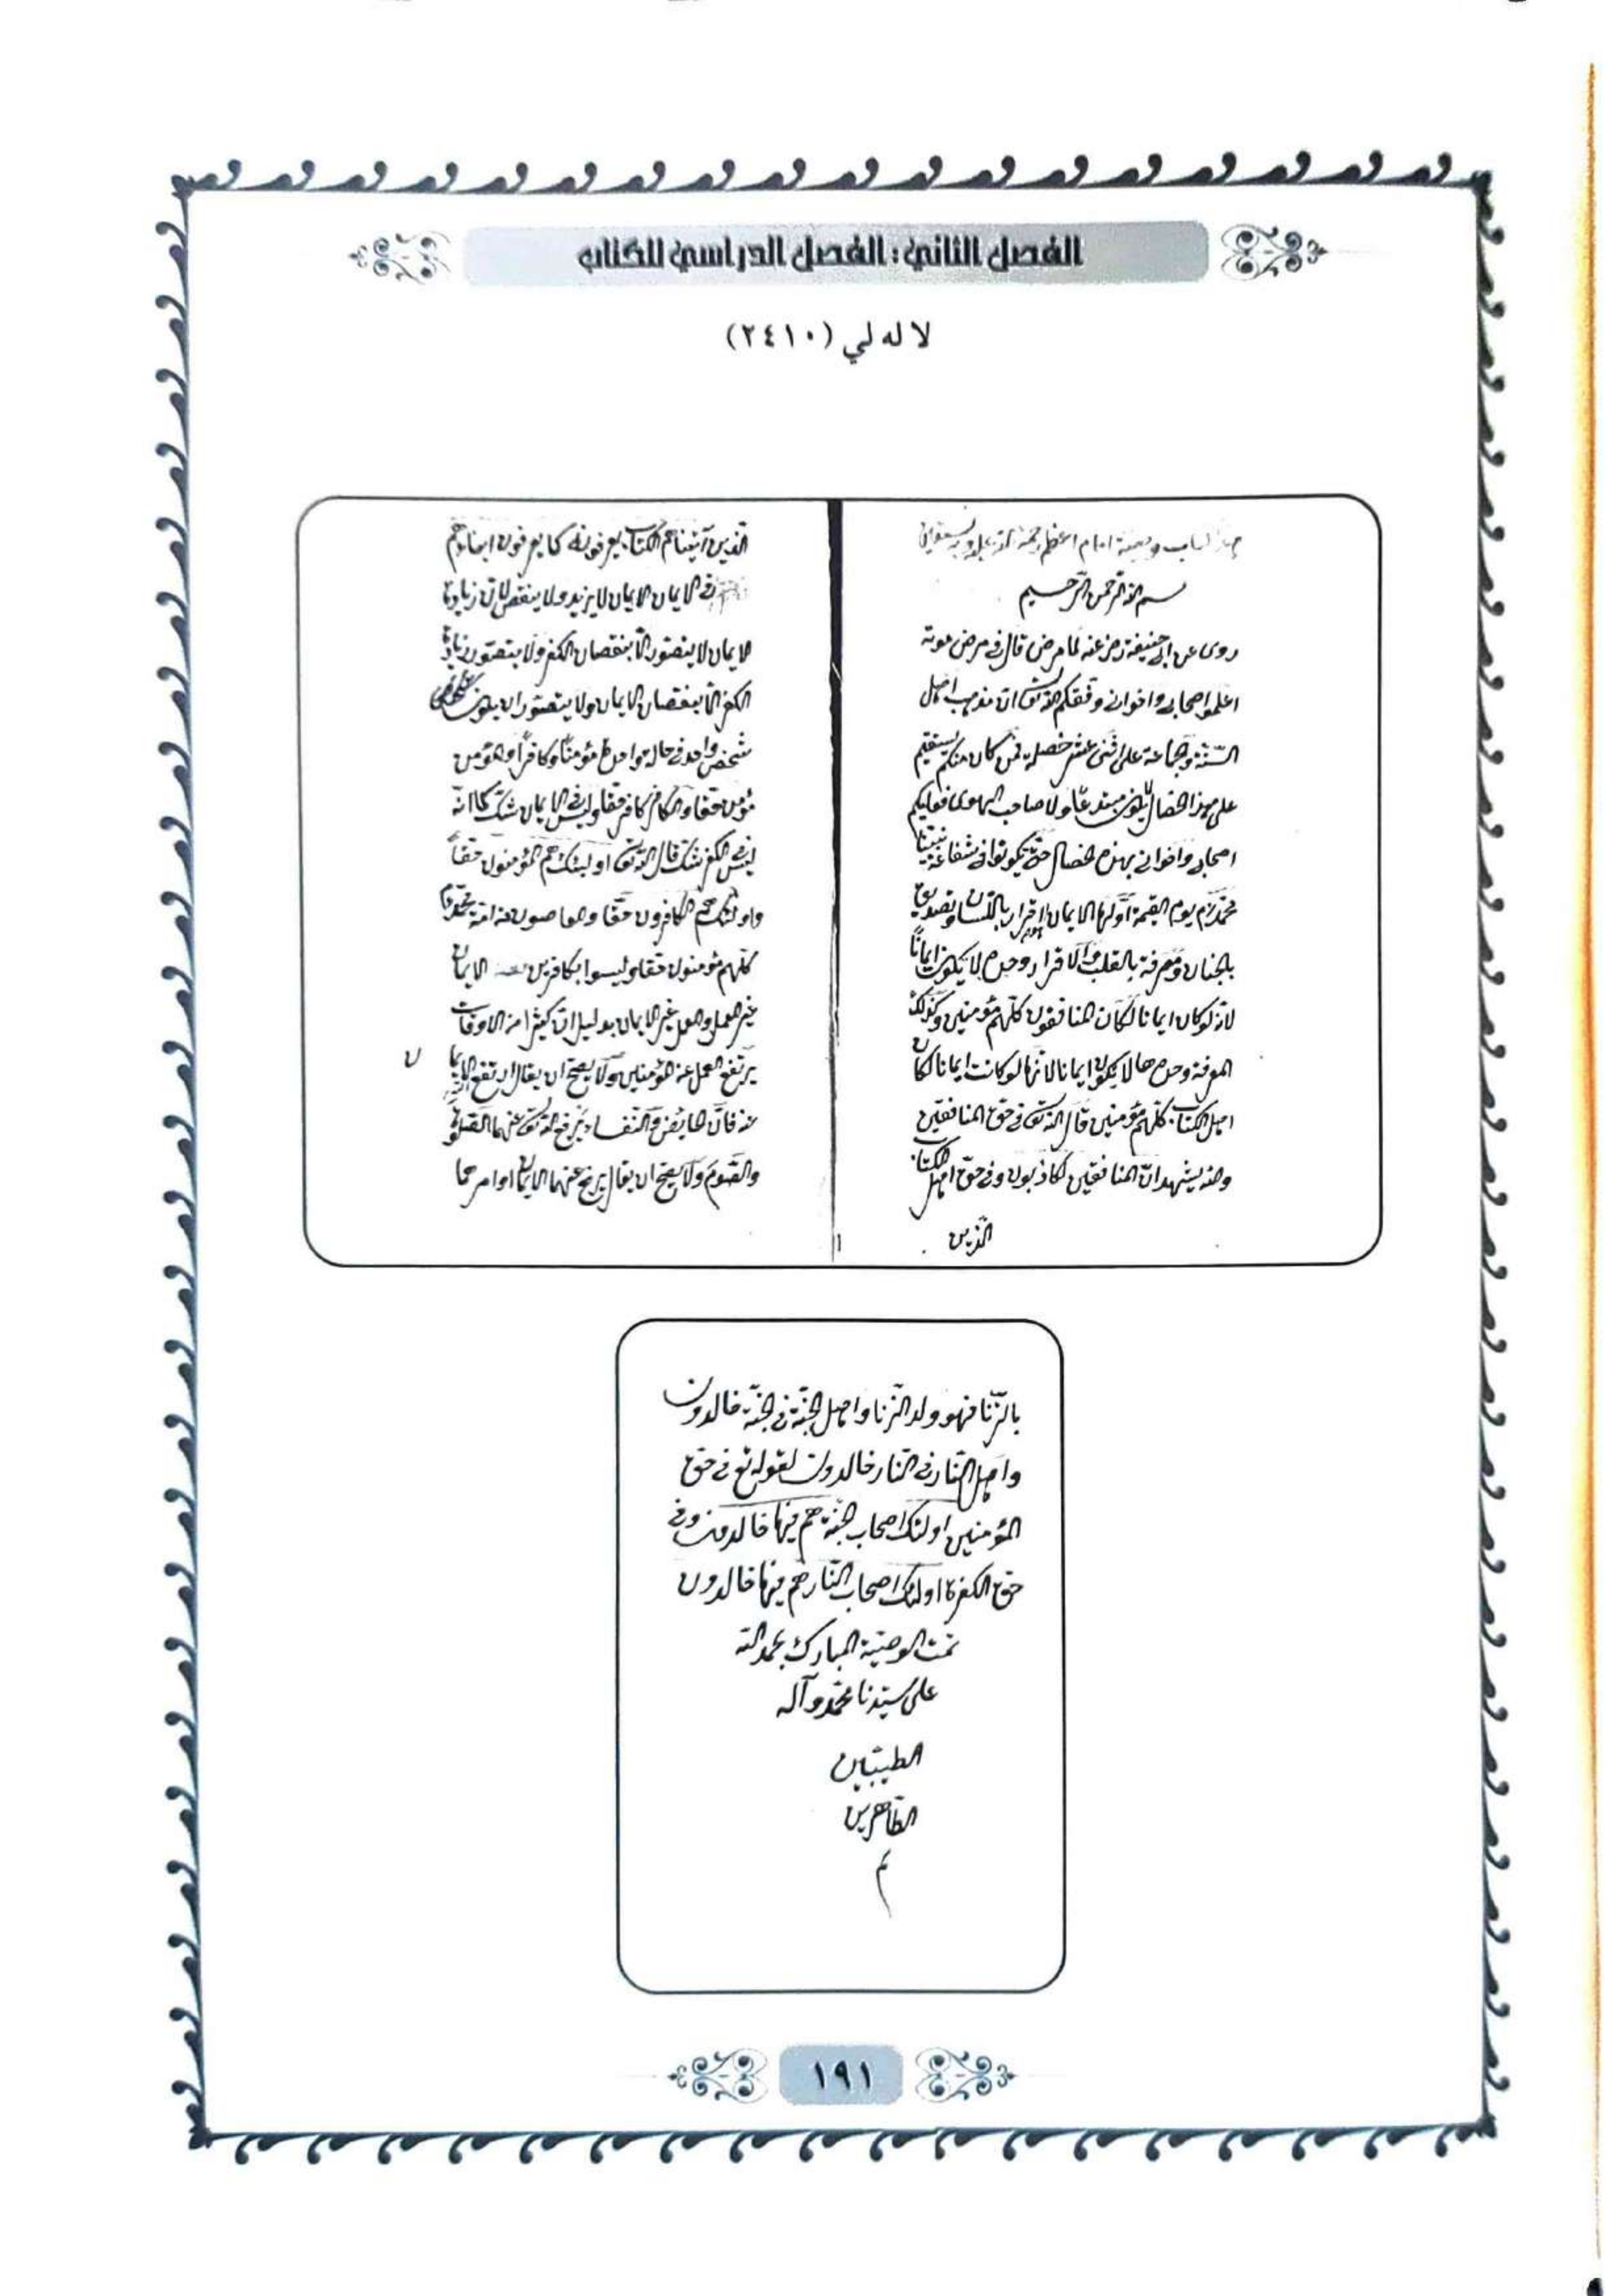 الفصل الثاني: الفصل الدراسي للكتاب
لا له لي (٢٤١٠)
هذا كتاب وصية امام اعظم رحمة الله عليه
بسم الله الرحمن الرحيم
روى عن ابى حنيفة رضى عنه لما مرض قال فى مرض موته
اعلموا اصحابى واخوانى وفقكم الله تع ان مذهب اهل
السنة وجماعة على اثنى عشر خصلة فمن كان منكم يستقيم
على هذا الخصال لا يكون مبتدعا ولا صاحب الهوى فعليكم
اصحابى واخوانى بهذه الخصال حتى تكونوا فى شفاعة نبينا
محمد م يوم القيمة اولها الايمان اقرار باللسان وتصديق
بالجنان ومعرفة بالقلب والاقرار وحده لا يكون ايمانا
لانه لو كان ايمانا لكان المنافقون كلهم مؤمنين وكذلك
المعرفة وحدها لا يكون ايمانا لانها لو كانت ايمانا لكان
اهل الكتاب كلهم مؤمنين قال الله تع فى حق المنافقين
والله يشهد ان المنافقين لكاذبون وفى حق اهل الكتاب
الذين
الذين آتيناهم الكتاب يعرفونه كما يعرفون ابناءهم
فى الايمان الايمان لا يزيد ولا ينقص لان زيادة
الايمان لا يتصور الا بنقصان الكفر ولا يتصور زيادة
الكفر الا بنقصان الايمان ولا يتصور ان يكون
شخص واحد فى حالة واحدة مؤمنا وكافرا والمؤمن
مؤمن حقا والكافر كافر حقا وليس فى الايمان شك كما انه
ليس فى الكفر شك قال الله تع اولئك هم المؤمنون حقا
واولئك هم الكافرون حقا والعاصون من امة محمد م
كلهم مؤمنون حقا وليسوا بكافرين الايمان
غير العمل والعمل غير الايمان بدليل ان كثيرا من الاوقات
يرتفع العمل عن المؤمنين ولا يصح ان يقال ارتفع الايمان
عنه فان الحايض والنفساء يرفع الله تع عنهما الصلوة
والصوم ولا يصح ان يقال يرفع عنهما الايمان او امرهما
بالزنا فهو ولد الزنا واهل الجنة فى الجنة خالدون
واهل النار فى النار خالدون لقوله تع فى حق
المؤمنين اولئك اصحاب الجنة هم فيها خالدون وفى
حق الكفرة اولئك اصحاب النار هم فيها خالدون
تمت الوصية المبارك بحمد الله
على سيدنا محمد وآله
الطيبين
الطاهرين
تم
١٩١